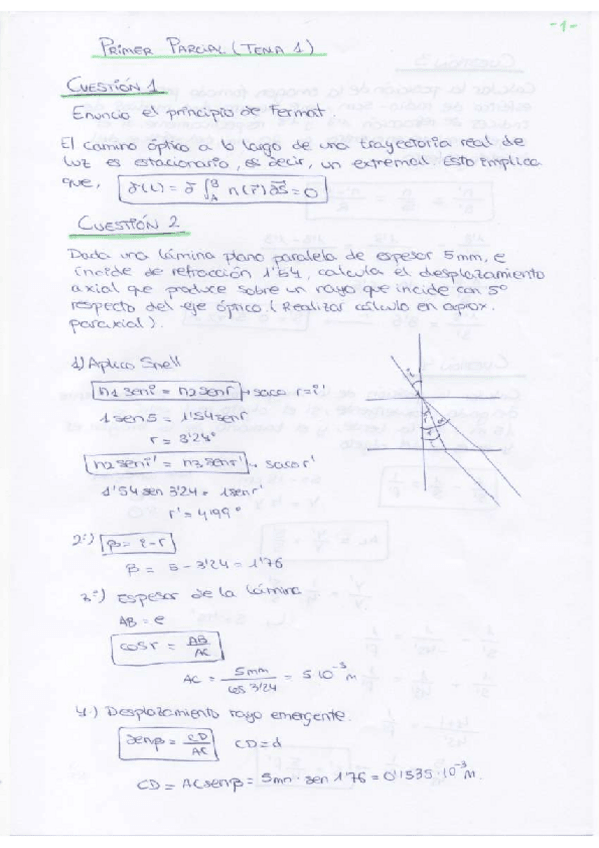 -1-
PRIMER PARCIAL (TEMA 1)
CUESTIÓN 1
Enuncia el principio de Fermat.
El camino óptico a lo largo de una trayectoria real de
luz es estacionario, es decir, un extremal. Esto implica
que, δ(L) = δ ∫_A^B n(r⃗) dS = 0
CUESTIÓN 2
Dada una lámina plano paralela de espesor 5mm, e
índice de refracción 1'54, calcula el desplazamiento
axial que produce sobre un rayo que incide con 5º
respecto del eje óptico. (Realizar cálculo en aprox.
paraxial).
1) Aplico Snell
n1 seni = n2 senr → saco r=i'
1 sen 5 = 1'54 senr
r = 3'24º
n2 seni' = n3 senr' → saco r'
1'54 sen 3'24 = 1 senr'
r' = 4'99º
2º) β = i - r
β = 5 - 3'24 = 1'76
3º) Espesor de la lámina
AB = e
cos r = AB/AC
AC = 5mm/cos 3'24 = 5·10⁻³ m
4º) Desplazamiento rayo emergente.
senβ = CD/AC CD = d
CD = AC senβ = 5mm · sen 1'76 = 0'1535·10⁻³ m.